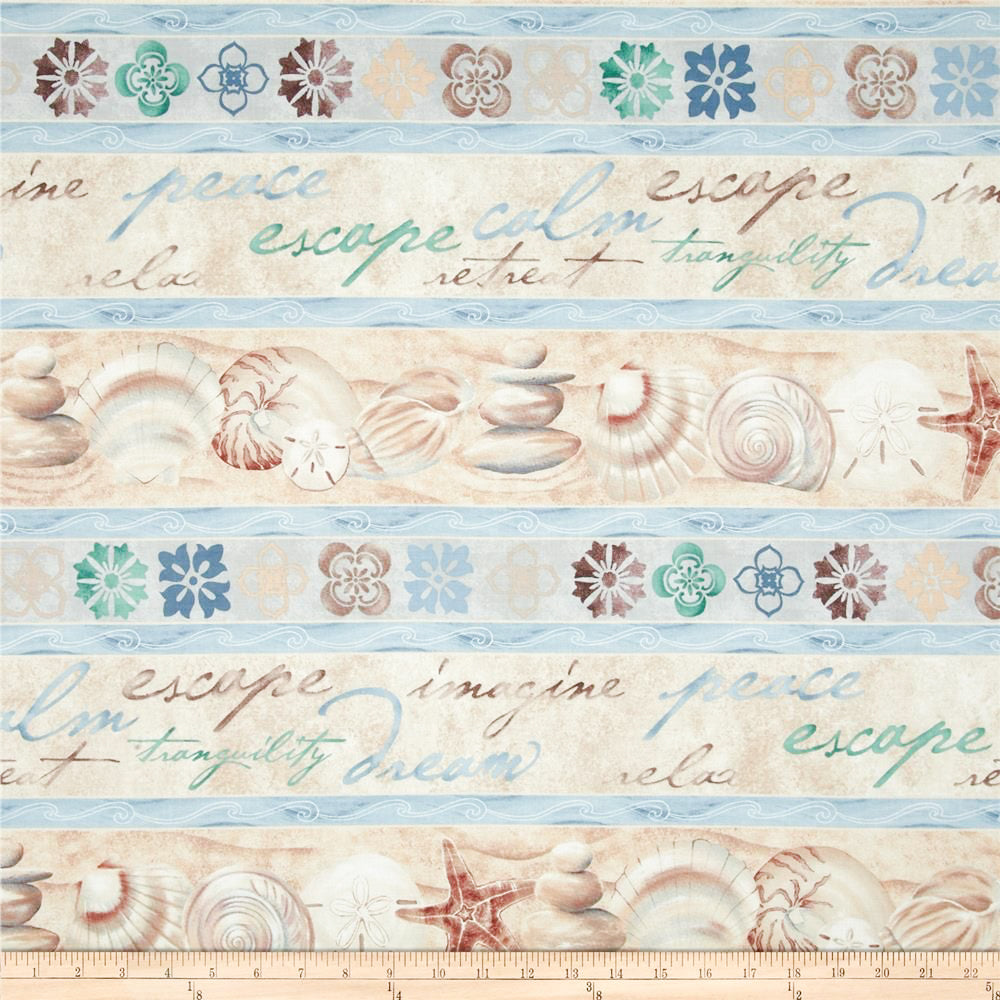 ine peace escape im
escape calm
relax retreat tranquility drea
escape imagine peace
alm escape
eat tranquility dream relax re
1 2 3 4 5 6 7 8 9 10 11 12 13 14 15 16 17 18 19 20 21 22 23
1/8 1/4 3/8 1/2 5